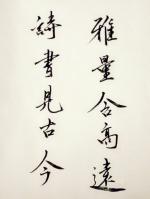 雅量含高遠
綺書見古今